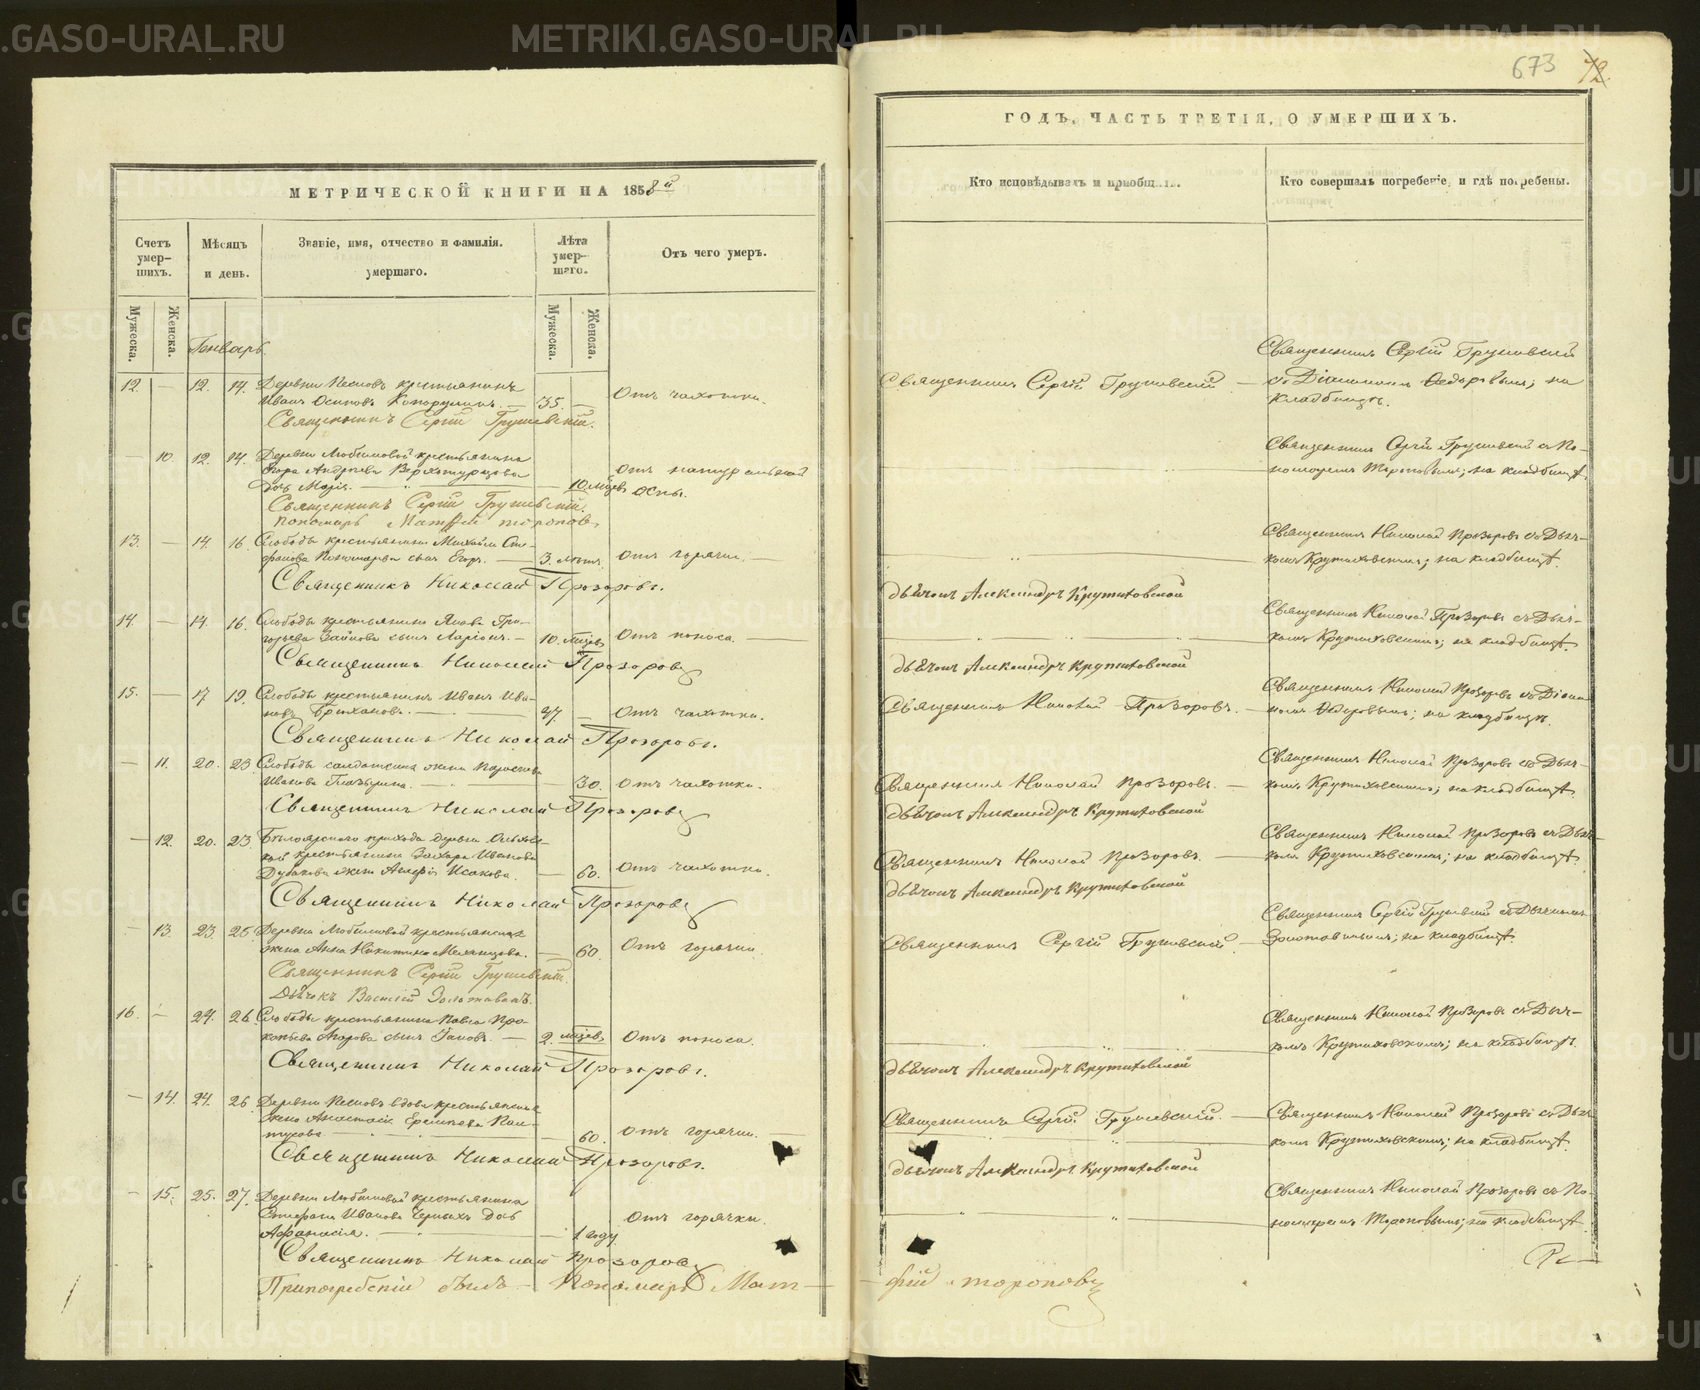 673 72.
МЕТРИЧЕСКОЙ КНИГИ НА 1858й
Счетъ умер-
шихъ.
Мѣсяцъ
и день.
Званіе, имя, отчество и фамилія.
умершаго.
Лѣта
умер-
шаго.
Отъ чего умеръ.
Мужеска.
Женска.
Мужеска.
Женска.
Генварь.
12. — 12. 14. Деревни крестьянинъ
Иванъ Осиповъ — 35. — Отъ чахотки.
Священникъ Сергій Грушевскій.
— 10. 12. 14. Деревни Любимовой крестьянина
Егора Андреева Верхотурцова
дочь Марія. — 10 мѣсяц. Отъ натуральной
оспы.
Священникъ Сергій Грушевскій.
Пономарь Матфій Торопов
13. — 14. 16. Слободы крестьянина Михаила Сте-
фанова сынъ Егоръ. — 3. лѣтъ. Отъ горячки. —
Священникъ Николай Прозоровъ.
14. — 14. 16. Слободы крестьянина Якова Гри-
горьева Зайкова сынъ Ларіонъ. — 10. мѣсяц. Отъ поноса. —
Священникъ Николай Прозоровъ
15. — 17 19. Слободы крестьянинъ Иванъ Ива-
новъ Брюхановъ. — 47 — Отъ чахотки.
Священникъ Николай Прозоровъ.
— 11. 20. 23 Слободы солдатская жена
Иванова — 30. Отъ чахотки.
Священникъ Николай Прозоровъ
— 12 20. 23 Бѣлоярскаго прихода деревни
крестьянина Захара Иванова
жена Исакова. — 60. Отъ чахотки.
Священникъ Николай Прозоровъ
— 13. 23. 25 Деревни Любимовой крестьянская
жена Анна Никитина — 60. Отъ горячки
Священникъ Сергій Грушевскій.
Дьячокъ Василій Золотавинъ.
16. — 24. 26. Слободы крестьянина Павла Про-
копьева сынъ — 2. мѣсяц. Отъ поноса.
Священникъ Николай Прозоровъ.
— 14. 24. 26 Деревни вдова крестьянская
жена Анастасія
— 60. Отъ горячки. —
Священникъ Николай Прозоровъ.
— 15. 25. 27. Деревни Любимовой крестьянина
Стефана Иванова Черныхъ дочь
Афанасія. — 1 году Отъ горячки.
Священникъ Николай Прозоровъ
При погребеніи былъ — Пономарь Мат —
ГОДЪ, ЧАСТЬ ТРЕТІЯ, О УМЕРШИХЪ.
Кто исповѣдывалъ и пріобщалъ.
Кто совершалъ погребеніе, и гдѣ погребены.
Священникъ Сергій Грушевскій —
Священникъ Сергій Грушевскій
съ Діакономъ Федоровымъ; на
кладбищѣ.
Священникъ Сергій Грушевскій съ По-
номаремъ Тороповымъ; на кладбищѣ.
Священникъ Николай Прозоровъ съ Дьяч-
комъ Крутиховскимъ; на кладбищѣ.
дьячокъ Александръ Крутиховской
Священникъ Николай Прозоровъ съ Дьяч-
комъ Крутиховскимъ; на кладбищѣ.
дьячокъ Александръ Крутиховской
Священникъ Николай Прозоровъ. —
Священникъ Николай Прозоровъ съ Діако-
номъ Федоровымъ; на кладбищѣ.
Священникъ Николай Прозоровъ. —
дьячокъ Александръ Крутиховской
Священникъ Николай Прозоровъ съ Дьяч-
комъ Крутиховскимъ; на кладбищѣ.
Священникъ Николай Прозоровъ. —
дьячокъ Александръ Крутиховской
Священникъ Николай Прозоровъ съ Дьяч-
комъ Крутиховскимъ; на кладбищѣ.
Священникъ Сергій Грушевскій. —
Священникъ Сергій Грушевскій съ Дьячкомъ
Золотавинымъ; на кладбищѣ.
Священникъ Николай Прозоровъ съ Дьяч-
комъ Крутиховскимъ; на кладбищѣ.
дьячокъ Александръ Крутиховской
Священникъ Сергій Грушевскій. —
Священникъ Николай Прозоровъ съ Дьяч-
комъ Крутиховскимъ; на кладбищѣ.
дьячокъ Александръ Крутиховской
Священникъ Николай Прозоровъ съ По-
номаремъ Тороповымъ; на кладбищѣ.
фій Тороповъ
METRIKI.GASO-URAL.RU